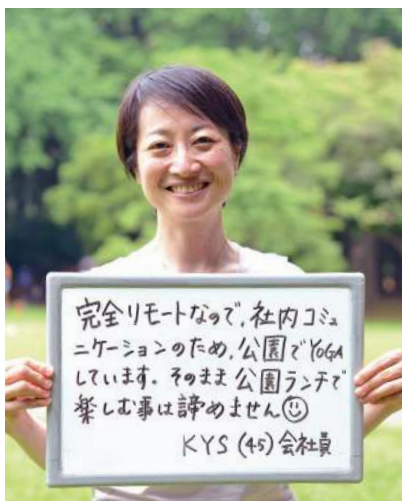 完全リモートなので、社内コミュ
ニケーションのため、公園でYOGA
しています。そのまま公園ランチで
楽しむ事は諦めません☺
KYS (45) 会社員